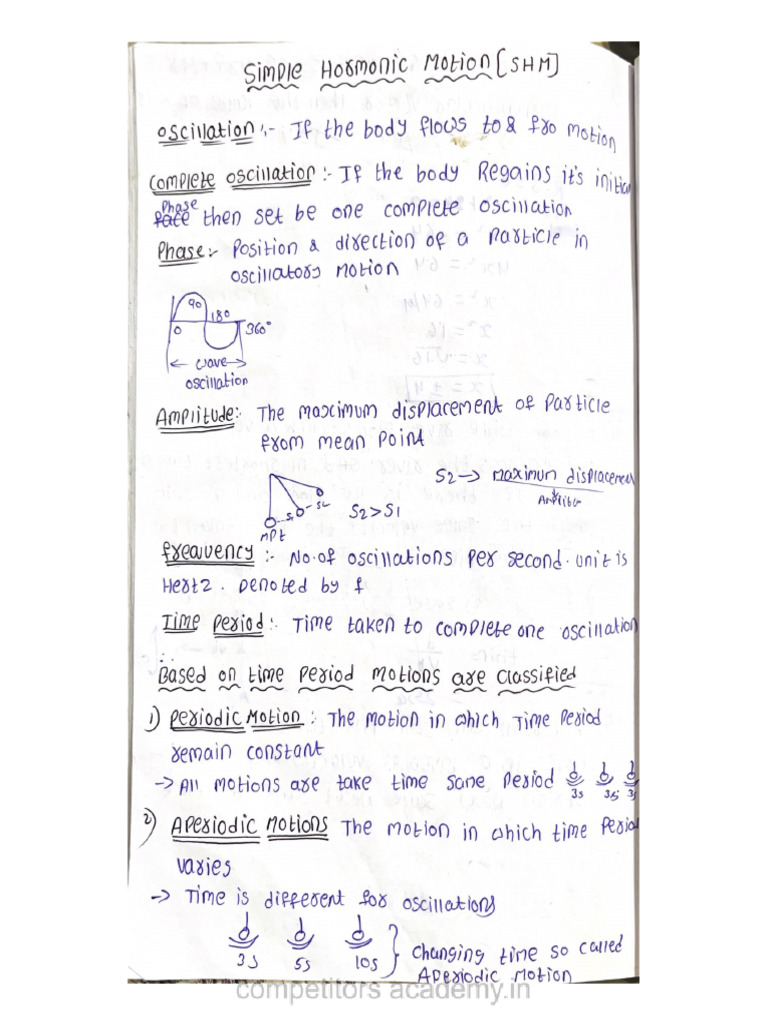 Simple Harmonic Motion [SHM]
Oscillation :- If the body flows to & fro motion
Complete oscillation :- If the body Regains it's initial
Phase
face then set be one complete oscillation
Phase :- Position & direction of a Particle in
oscillatory motion
90
180
0
360°
← wave →
oscillation
Amplitude :- The maximum displacement of Particle
from mean Point
S2 → maximum displacement
S1
S2
S2 > S1
MPt
frequency :- No.of oscillations Per second. unit is
Hertz. Denoted by f
Time Period :- Time taken to complete one oscillation
∴ Based on time Period motions are classified
1) Periodic Motion : The motion in which Time Period
remain constant
→ All motions are take time same Period
3s 3s 3s
2) Aperiodic Motions The motion in which time Period
varies
→ Time is different for oscillations
3s 5s 10s } Changing time so called
Aperiodic Motion
competitors academy.in